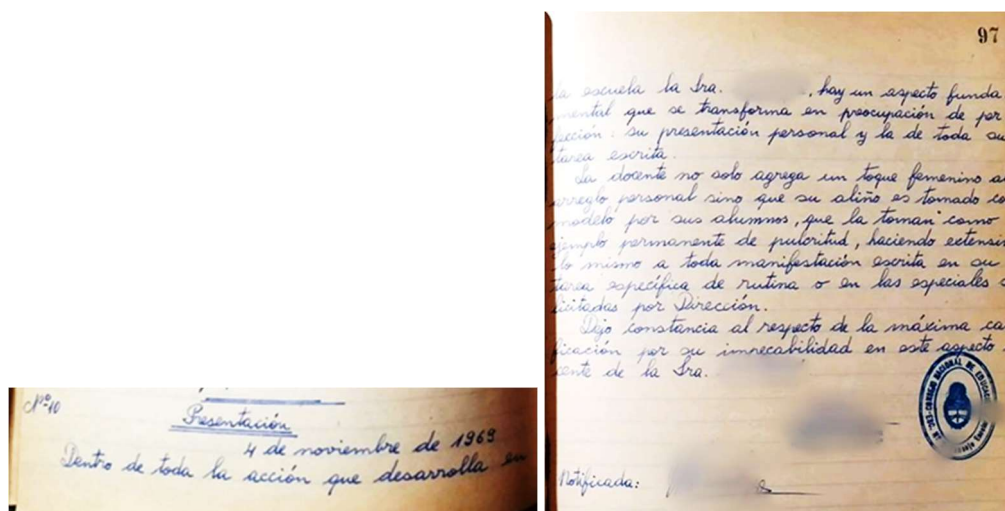 Nº 10
Presentación
4 de noviembre de 1969
Dentro de toda la acción que desarrolla en
97
la escuela la Sra. , hay un aspecto funda
mental que se transforma en preocupación de per
fección: su presentación personal y la de toda su
tarea escrita.
La docente no solo agrega un toque femenino al
arreglo personal sino que su aliño es tomado co
modelo por sus alumnos, que la toman como
ejemplo permanente de pulcritud, haciendo extensi
lo mismo a toda manifestación escrita en su
tarea específica de rutina o en las especiales so
licitadas por Dirección.
Dejo constancia al respecto de la máxima ca
ficación por su impecabilidad en este aspecto
cente de la Sra.
CONSEJO NACIONAL DE EDUCAC
Notificada: